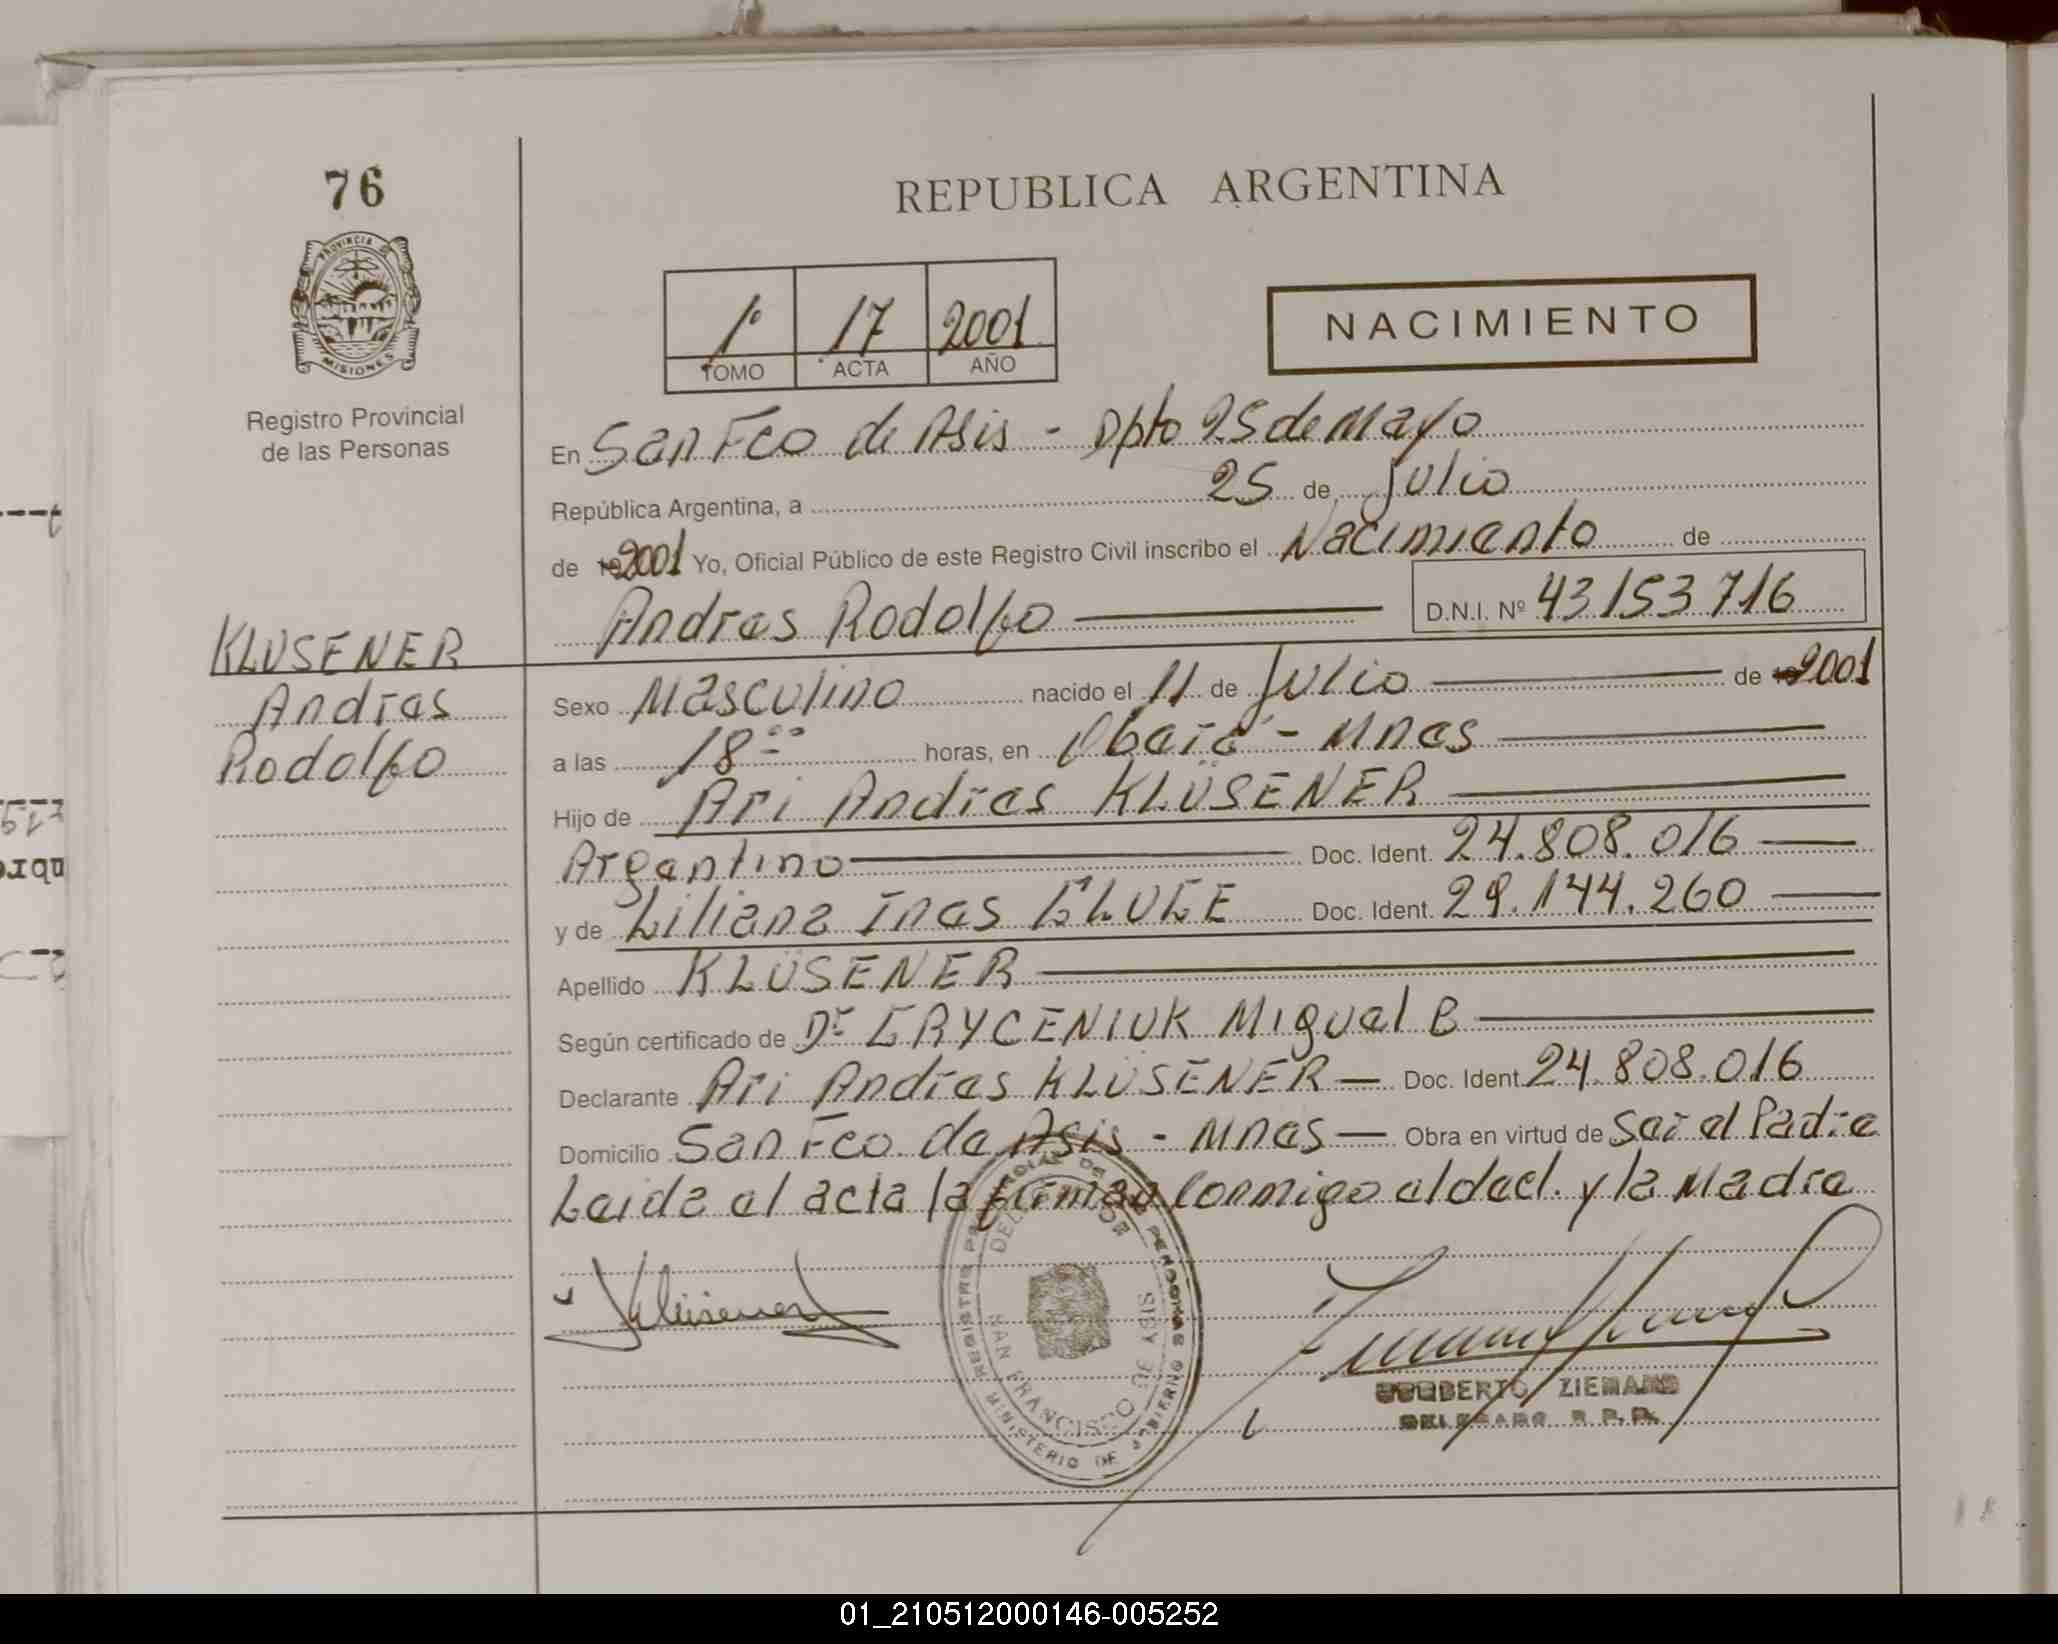 76
PROVINCIA DE
MISIONES
Registro Provincial
de las Personas
REPUBLICA ARGENTINA
1° 17 2001
TOMO ACTA AÑO
NACIMIENTO
En San Fco de Asis - Dpto 25 de Mayo
República Argentina, a 25 de Julio
de 19 2001 Yo, Oficial Público de este Registro Civil inscribo el Nacimiento de
Andres Rodolfo D.N.I. Nº 43153716
KLUSENER
Andres
Rodolfo
Sexo Masculino nacido el 11 de Julio de 19 2001
a las 18 00 horas, en Oberá - Mnes
Hijo de Ari Andres KLÜSENER
Argentino Doc. Ident. 24.808.016
y de Liliana Ines GLUGE Doc. Ident. 29.144.260
Apellido KLÜSENER
Según certificado de Dr GRYCENIUK Miguel B
Declarante Ari Andres KLÜSENER Doc. Ident. 24.808.016
Domicilio San Fco. de Asis - Mnes Obra en virtud de Ser el Padre
Leida el acta la firman Conmigo el decl. y la Madre
Klüsener
REGISTRO DE PERSONAS
SAN FRANCISCO DE ASIS
MINISTERIO DE GOBIERNO
ZIEMANN
DELEGADO R.P.P.
01_210512000146-005252